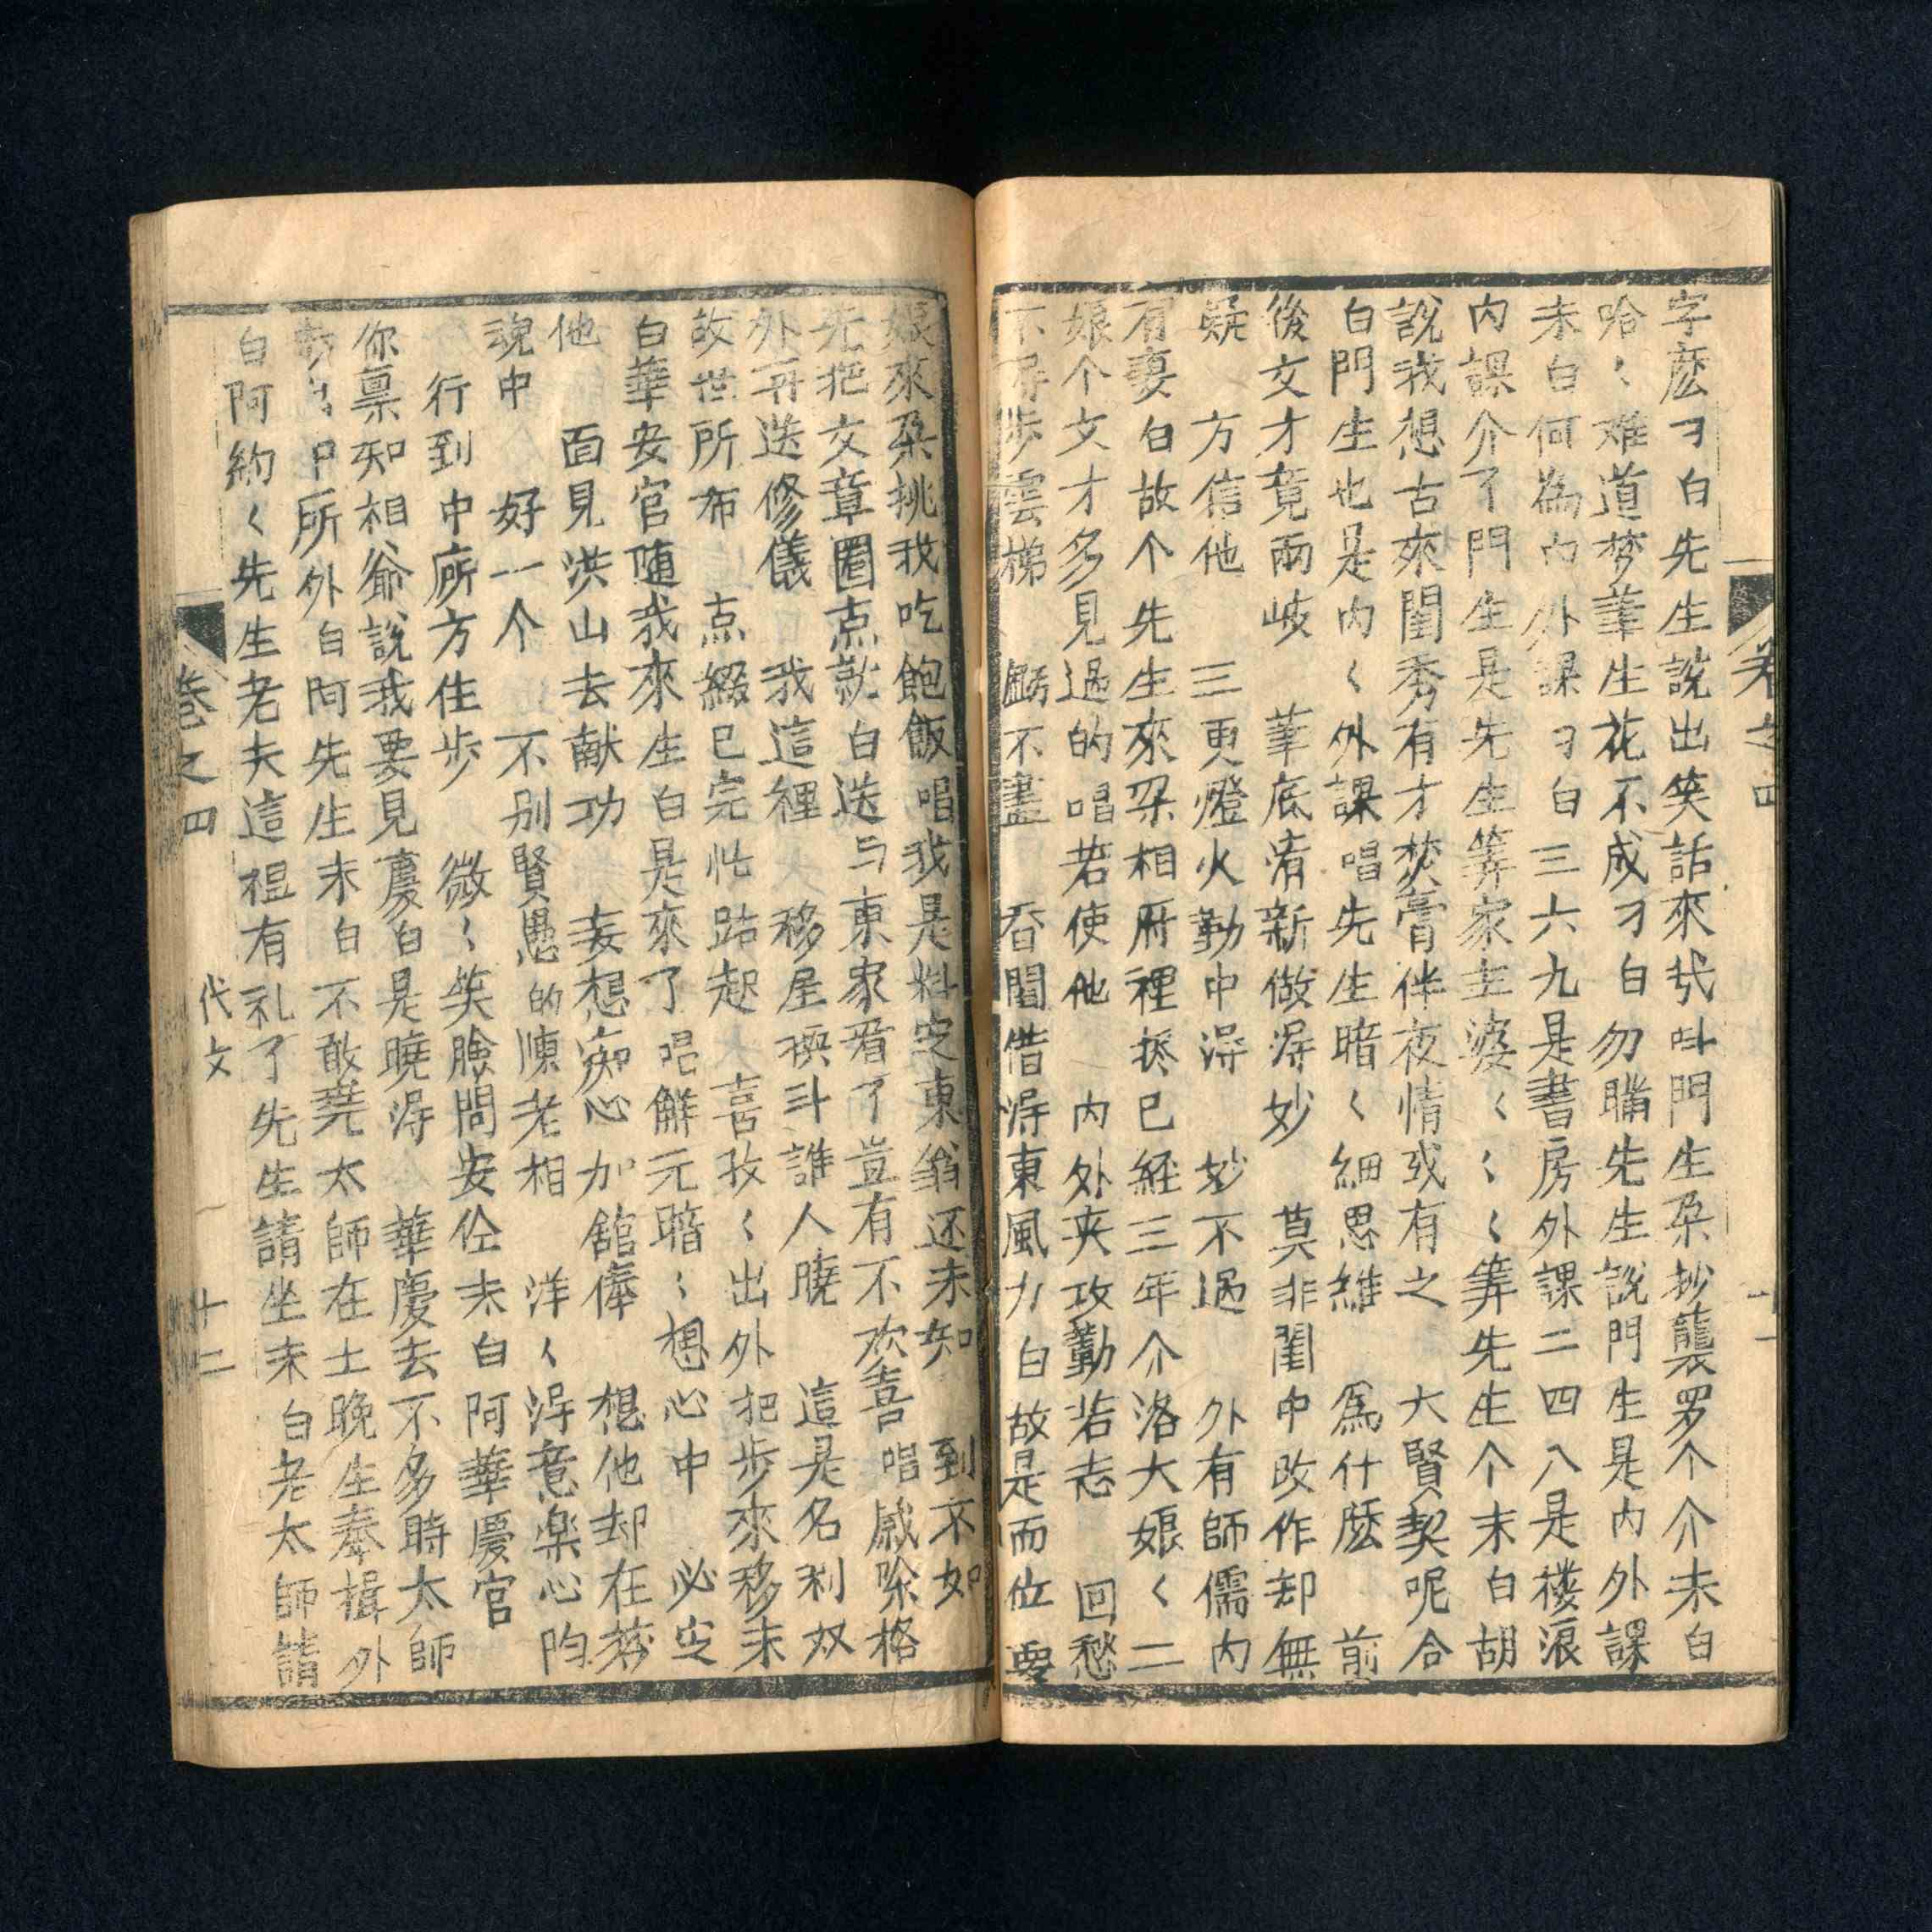 字麽刁白先生說出笑話來哉呌門生朶抄襲罗个介末白
哈〻难道梦筆生花不成刁白勿瞞先生說門生是内外課
末白何為内外課刁白三六九是書房外課二四八是楼
内課介了門生是先生筭家主婆〻〻〻筭先生个末白胡
說我想古來閨秀有才焚膏伴夜情或有之 大賢契呢合
白門生也是内〻外課唱先生暗〻細思維 爲什麽 前
後文才竟兩岐 筆底清新做淂妙 莫非閨中改作却無
疑 方信他 三更燈火勤中淂 妙不過 外有師儒内
有妻白故个先生來朶相府裡 已經三年个洛大娘〻二
娘个文才多見過的唱若使他 内外夹攻勤若志 回愁
不 步雲梯 虧不盡 香閨借淂東風力白故是而位 要
卷之四 十一
娘來朶挑我吃飽飯唱我是料定東翁还未知 到不如
先把文章圈点就白送与東家看了豈有不欢喜唱感 格
外再送修儀 我這裡 移星换斗誰人曉 這是名利双
故世所布 点綴已完忙跕起 喜孜〻出外把步來移末
白華安官随我來生白是來了唱鮮元暗〻想心中 必定
他 面見洪山去献功 妄想痴心加舘俸 想他却在梦
魂中 好一个 不别賢愚的陳老相 洋〻淂意楽心
行到中廊方住步 微〻笑臉問安 末白阿華慶官
你禀知相爺說我要見慶白是曉淂 華慶去不多時太師
 所外白阿先生末白不敢堯太師在士晚生奉揖外
白阿約〻先生老夫這 有礼了先生請坐末白老太師請
卷之四 代文 十二